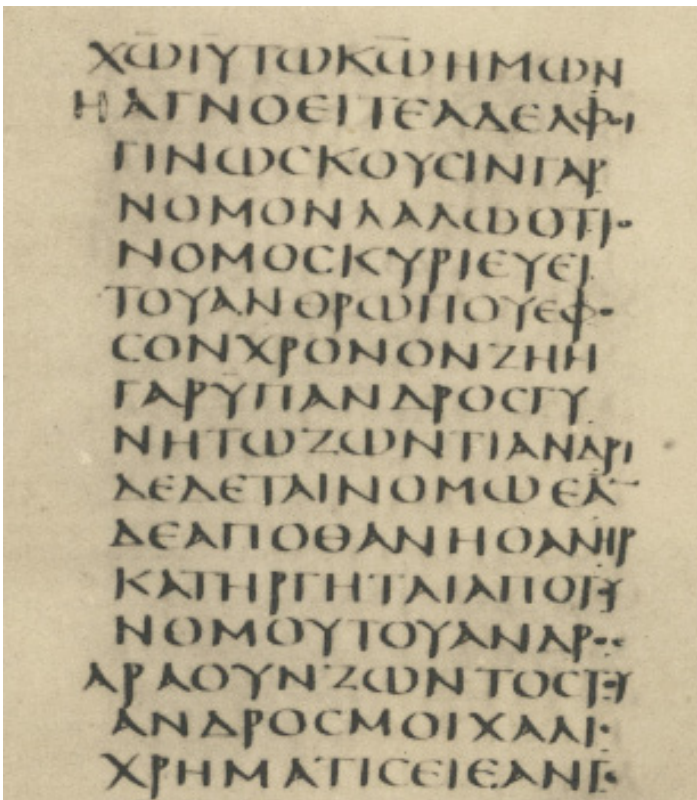 Χ̅Ω̅Ι̅Υ̅ΤΩΚ̅Ω̅ΗΜΩΝ
ΗΑΓΝΟΕΙΤΕΑΔΕΛΦΟΙ
ΓΙΝΩϹΚΟΥϹΙΝΓΑΡ
ΝΟΜΟΝΛΑΛΩΟΤΙΟ
ΝΟΜΟϹΚΥΡΙΕΥΕΙ
ΤΟΥΑΝΘΡΩΠΟΥΕΦΟ
ϹΟΝΧΡΟΝΟΝΖΗΗ
ΓΑΡΥΠΑΝΔΡΟϹΓΥ
ΝΗΤΩΖΩΝΤΙΑΝΔΡΙ
ΔΕΔΕΤΑΙΝΟΜΩΕΑ¯
ΔΕΑΠΟΘΑΝΗΟΑΝΗΡ
ΚΑΤΗΡΓΗΤΑΙΑΠΟΤΟΥ
ΝΟΜΟΥΤΟΥΑΝΔΡΟϹ
ΑΡΑΟΥΝΖΩΝΤΟϹΤΟΥ
ΑΝΔΡΟϹΜΟΙΧΑΛΙϹ
ΧΡΗΜΑΤΙϹΕΙΕΑΝΓΕ